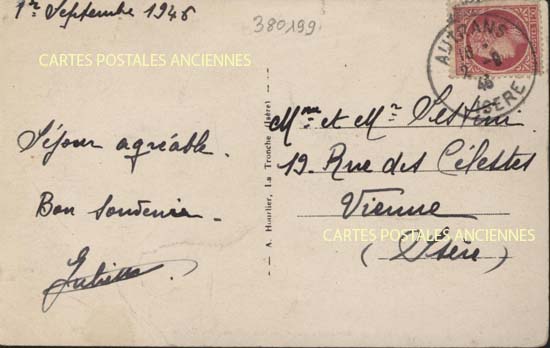 1er Septembre 1946
380199
CARTES POSTALES ANCIENNES
AUTRANS
ISERE
Séjour agréable.
Bon Souvenir.
Juliette
A. Hourlier, La Tronche (Isère)
Mme et Mr Settini
19. Rue des Célestes
Vienne
CARTES POSTALES ANCIENNES
(Isère)